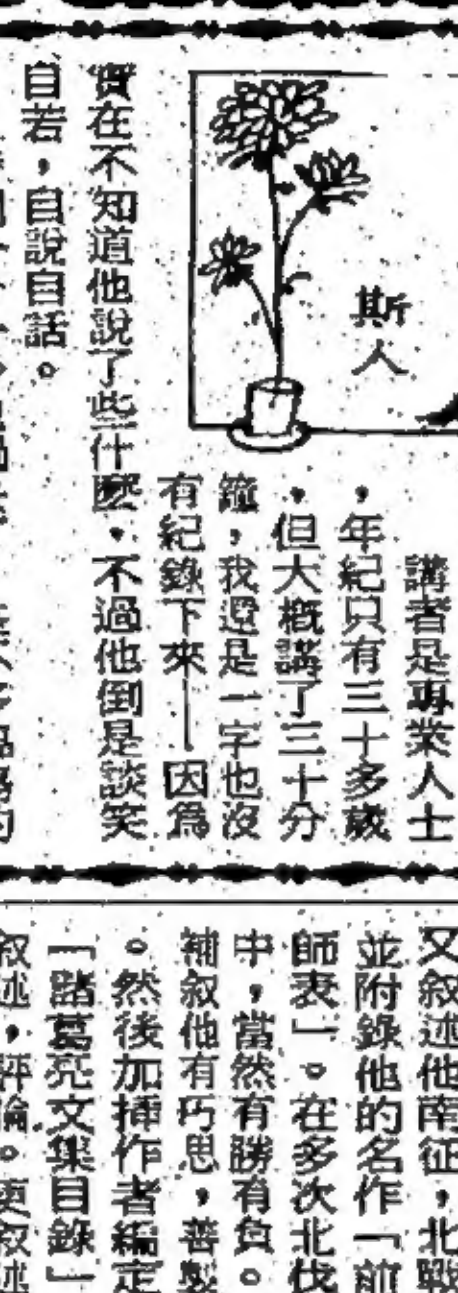 斯人
講者是專業人士
，年紀只有三十多歲
，但大概講了三十分
鐘，我還是一字也沒
有紀錄下來——因爲
實在不知道他說了些什麽，不過他倒是談笑
自若，自說自話。
又叙述他南征，北戰
並附錄他的名作「前
師表」。在多次北伐
中，當然有勝有負。
補叙他有巧思，善製
。然後加揷作者編定
「諸葛亮文集目錄」
叙述，評論。更叙述